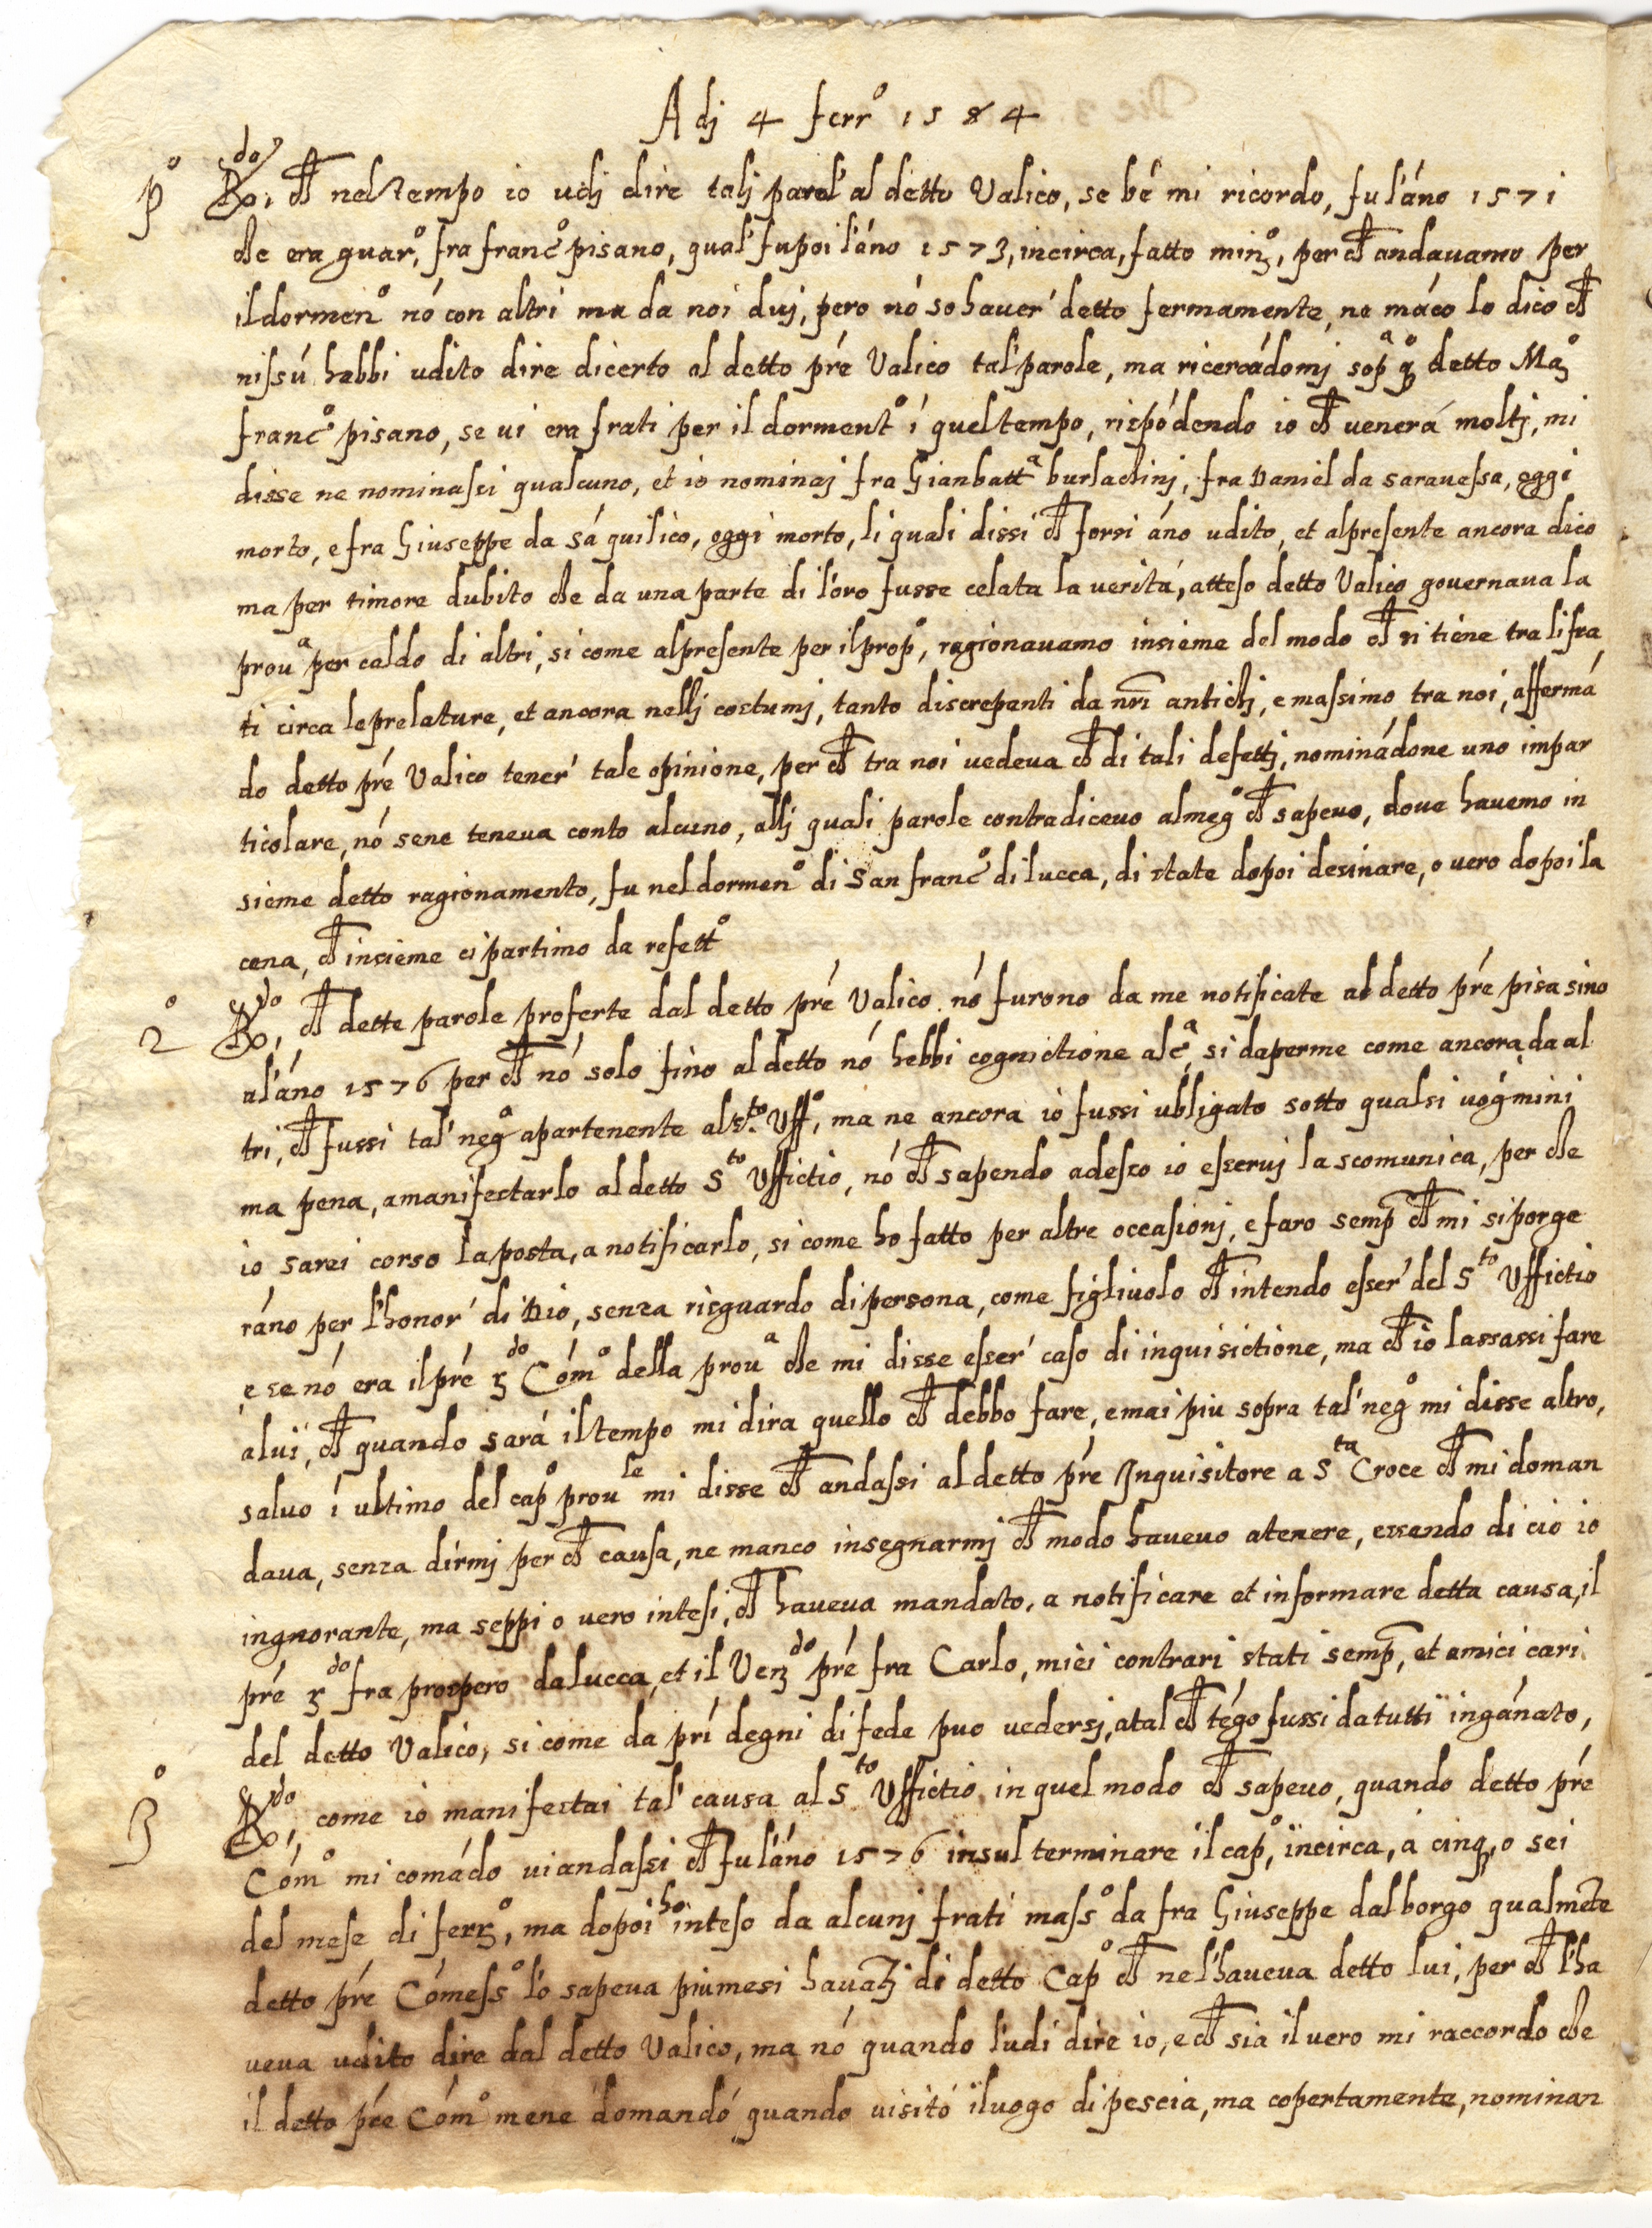 Adj 4 ferr.º 1584
pº R.do, ch nel tempo io udj dire talj parol' al detto Valico, se bé mi ricordo, fu l'áno 1571
che era guar.º, fra franc.º pisano, qual' fu poi l'áno 1573, incirca, fatto min.º, per ch andauamo per
il dormen.º nó con altri ma da noi duj, pero nó so hauer' detto fermamente, ne máco lo dico ch
nissú habbi udito dire dicerto al detto pré Valico tal' parole, ma ricercádomj sop.ª q.º detto Ma.º
franc.º pisano, se ui era frati per il dorment.º í quel tempo, rispódendo io ch uenerá moltj, mi
disse ne nominassi qualcuno, et io nominaj fra Gianbatt.ª burlachinj, fra Daniel da sarauessa, oggi
morto, e fra Giuseppe da sá quilico, oggi morto, li quali dissi ch forsi áno udito, et alpresente ancora dico
ma per timore dubito che da una parte di l'oro fusse celata la ueritá, atteso detto Valico gouernaua la
prou.ª per caldo di altri, si come alpresente per il prop.º, ragionauamo insieme del modo ch si tiene tra li fra
ti circa le prelature, et ancora nellj costumj, tanto discrepanti da nri antichj, e massimo tra noi, affermá
do detto pré Valico tener' tale opinione, per ch tra noi uedeua ch di tali defettj, nominádone uno impar
ticolare, nó sene teneua conto alcuno, allj quali parole contradiceuo al meg.º ch sapeuo, doue hauemo in
sieme detto ragionamento, fu nel dormen.º di San franc.º di lucca, di state dopoi desinare, o uero dopoi la
cena, ch insieme ci partimo da refett.º
2º R.do, ch dette parole proferte dal detto pré Valico nó furono da me notificate al detto pré pisa sino
al'áno 1576 per ch nó solo fino al detto nó hebbi cognictione alc.ª, si da per me come ancora da al
tri, ch fussi tal' neg.º apartenente al s.to Uff.º, ma ne ancora io fussi ubligato sotto qualsi uog' mini
ma pena, a manifestarlo al detto S.to Uffictio, nó ch sapendo adesso io esserui la scomunica, per che
io sarei corso la posta, a notificarlo, si come ho fatto per altre occasionj, e faro semp ch mi si porge
ráno per l'honor' di Dio, senza risguardo di persona, come figliuolo ch intendo esser' del S.to Uffictio
e se nó era il pré R.do Cóm.º della prou.ª che mi disse esser' caso di inquisictione, ma ch io lassassi fare
a lui, ch quando sará il tempo mi dira quello ch debbo fare, e mai piu sopra tal' neg.º mi disse altro,
saluo í ultimo del cap.º prou.le mi disse ch andassi al detto pré Inquisitore a S.ta Croce ch mi doman
daua, senza dirmj per ch causa, ne manco insegnarmj ch modo haueuo a tenere, essendo di cio io
ingnorante, ma seppi o uero intesi, ch haueua mandato, a notificare et informare detta causa, il
pré R.do fra prospero da lucca, et il Ven.do pré fra Carlo, miei contrari stati semp, et amici cari
del detto Valico, si come da prí degni di fede puo uedersj, a tal ch tégo fussi da tutti ingánato,
3º R.do, come io manifestai tal' causa al S.to Uffictio in quel modo ch sapeuo, quando detto pré
Cóm.º mi comádo ui andassi ch fu l'áno 1576 insul terminare il cap.º, incirca, a cinq, o sei
del mese di ferr.º, ma dopoi ho inteso da alcunj frati mass.º da fra Giuseppe dal borgo qualmete
detto pré Cómess.º lo sapeua piu mesi hauátj di detto Cap.º ch nel'haueua detto lui, per ch l'ha
ueua udito dire dal detto Valico, ma nó quando l'udi dire io, e ch sia il uero mi raccordo che
il detto pre Cóm.º mene domandó quando uisitó il luogo di pescia, ma copertamente, nominan